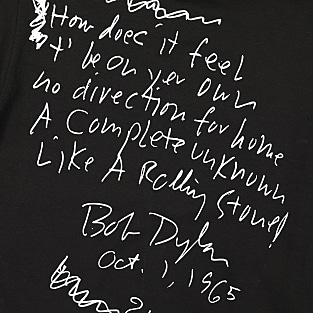 How does it feel
t' be on yer own
no direction for home
A Complete unknown
Like A Rolling Stone!
Bob Dylan
Oct. 1, 1965